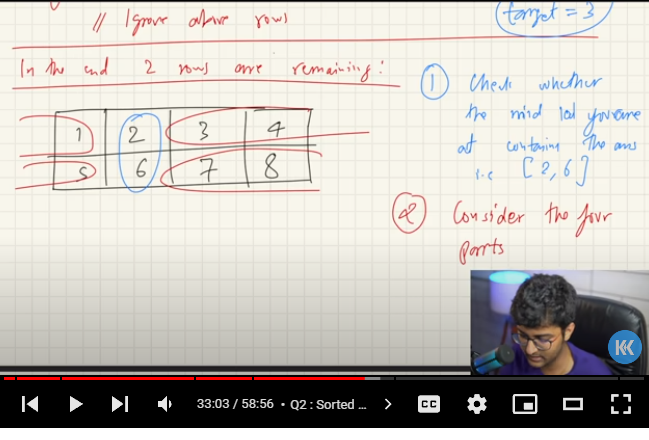 // Ignore above rows
target = 3
In the end 2 rows are remaining:
1 2 3 4
5 6 7 8
① Check whether
the mid col you are
at containing the ans
i.e [2,6]
② Consider the four
parts
KK
33:03 / 58:56 • Q2 : Sorted ...
CC